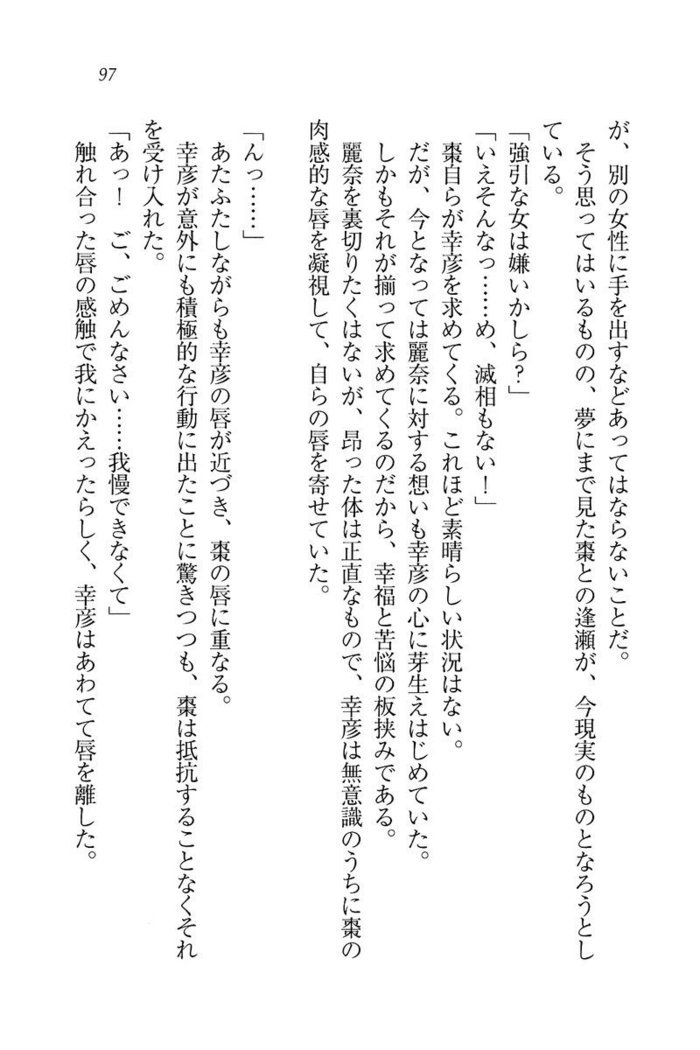 97
が、別の女性に手を出すなどあってはならないことだ。
そう思ってはいるものの、夢にまで見た棗との逢瀬が、今現実のものとなろうとし
ている。
「強引な女は嫌いかしら？」
「いえそんなっ……め、滅相もない！」
棗自らが幸彦を求めてくる。これほど素晴らしい状況はない。
だが、今となっては麗奈に対する想いも幸彦の心に芽生えはじめていた。
しかもそれが揃って求めてくるのだから、幸福と苦悩の板挟みである。
麗奈を裏切りたくはないが、昂った体は正直なもので、幸彦は無意識のうちに棗の
肉感的な唇を凝視して、自らの唇を寄せていた。
「んっ……」
あたふたしながらも幸彦の唇が近づき、棗の唇に重なる。
幸彦が意外にも積極的な行動に出たことに驚きつつも、棗は抵抗することなくそれ
を受け入れた。
「あっ！　ご、ごめんなさい……我慢できなくて」
触れ合った唇の感触で我にかえったらしく、幸彦はあわてて唇を離した。